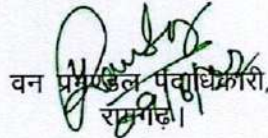 वन प्रमण्डल पदाधिकारी,
रामगढ़।